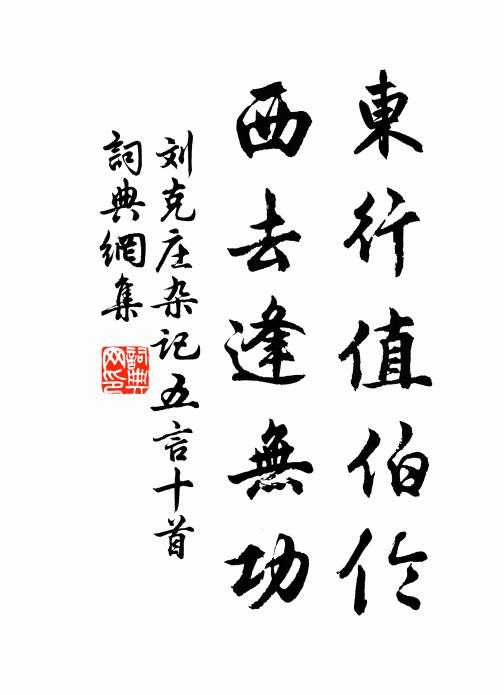 東行值伯伶
西去逢無功
刘克庄杂记五言十首
詞典網集
詞典网印